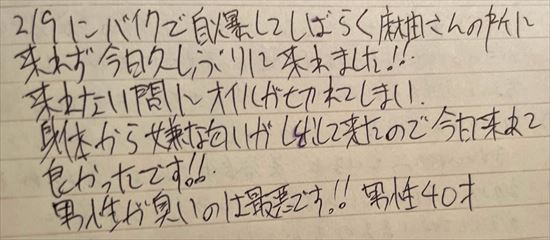 2/9にバイクで自爆してしばらく麻由さんの所に
来れず今日久しぶりに来れました!!
来れない間にオイルが切れてしまい.
身体から嫌な匂いがしだして来たので今日来れて
良かったです!!
男性が臭いのは最悪です!! 男性40才